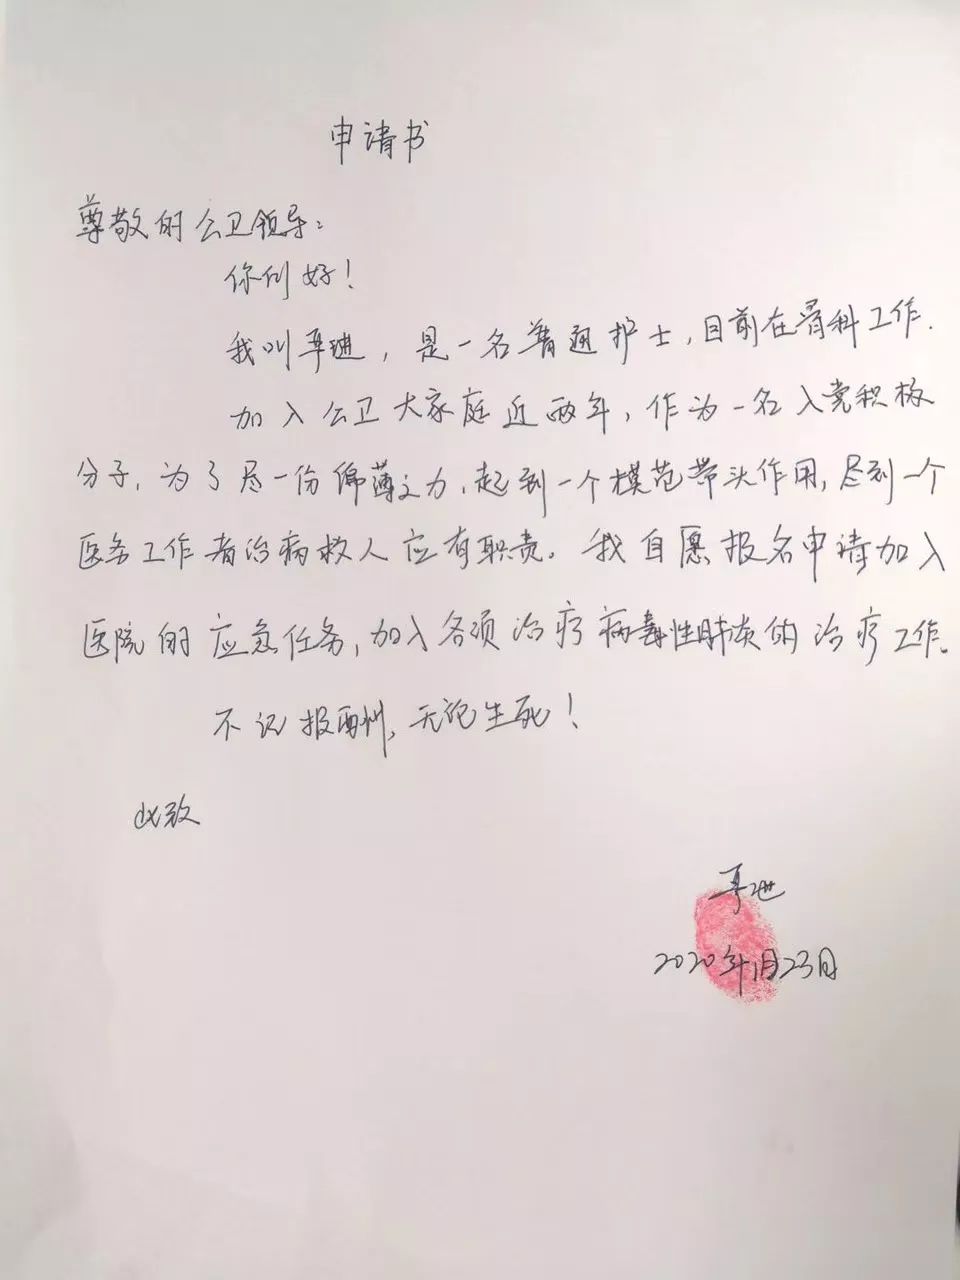 申请书
尊敬的公卫领导：
你们好！
我叫，是一名普通护士，目前在骨科工作.
加入公卫大家庭近两年，作为一名入党积极
分子，为了尽一份绵薄之力，起到一个模范带头作用，尽到一个
医务工作者治病救人应有职责。我自愿报名申请加入
医院的应急任务，加入各项治疗病毒性肺炎的治疗工作。
不记报酬，无论生死！
此致
2020年1月23日